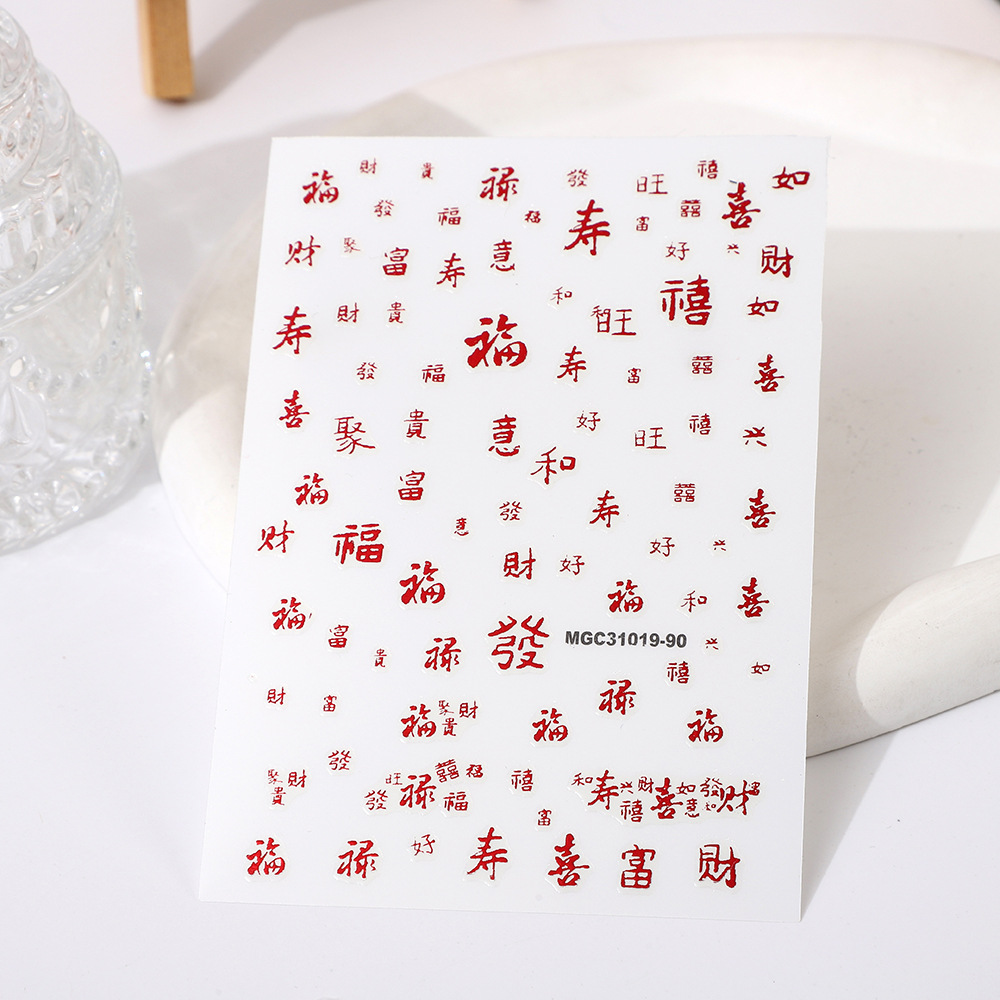 福 財 貴 禄 發 旺 禧 如
發 福 福 寿 富 囍 喜
财 聚 富 寿 意 好 兴 財
寿 財 貴 福 和 旺 禧 如
發 福 寿 富 囍 喜
喜 聚 貴 意 和 好 旺 禧 兴
福 富 發 寿 囍 喜
财 福 意 財 好 好 兴
福 福 福 和 喜
富 貴 禄 發 MGC31019-90 禧 兴 如
財 富 福 聚 財 貴 福 禄 福
發
聚 財 貴 發 旺 禄 囍 福 福 禧 和 寿 兴 财 禧 喜 如 意 發 和 财
富
福 禄 好 寿 喜 富 財